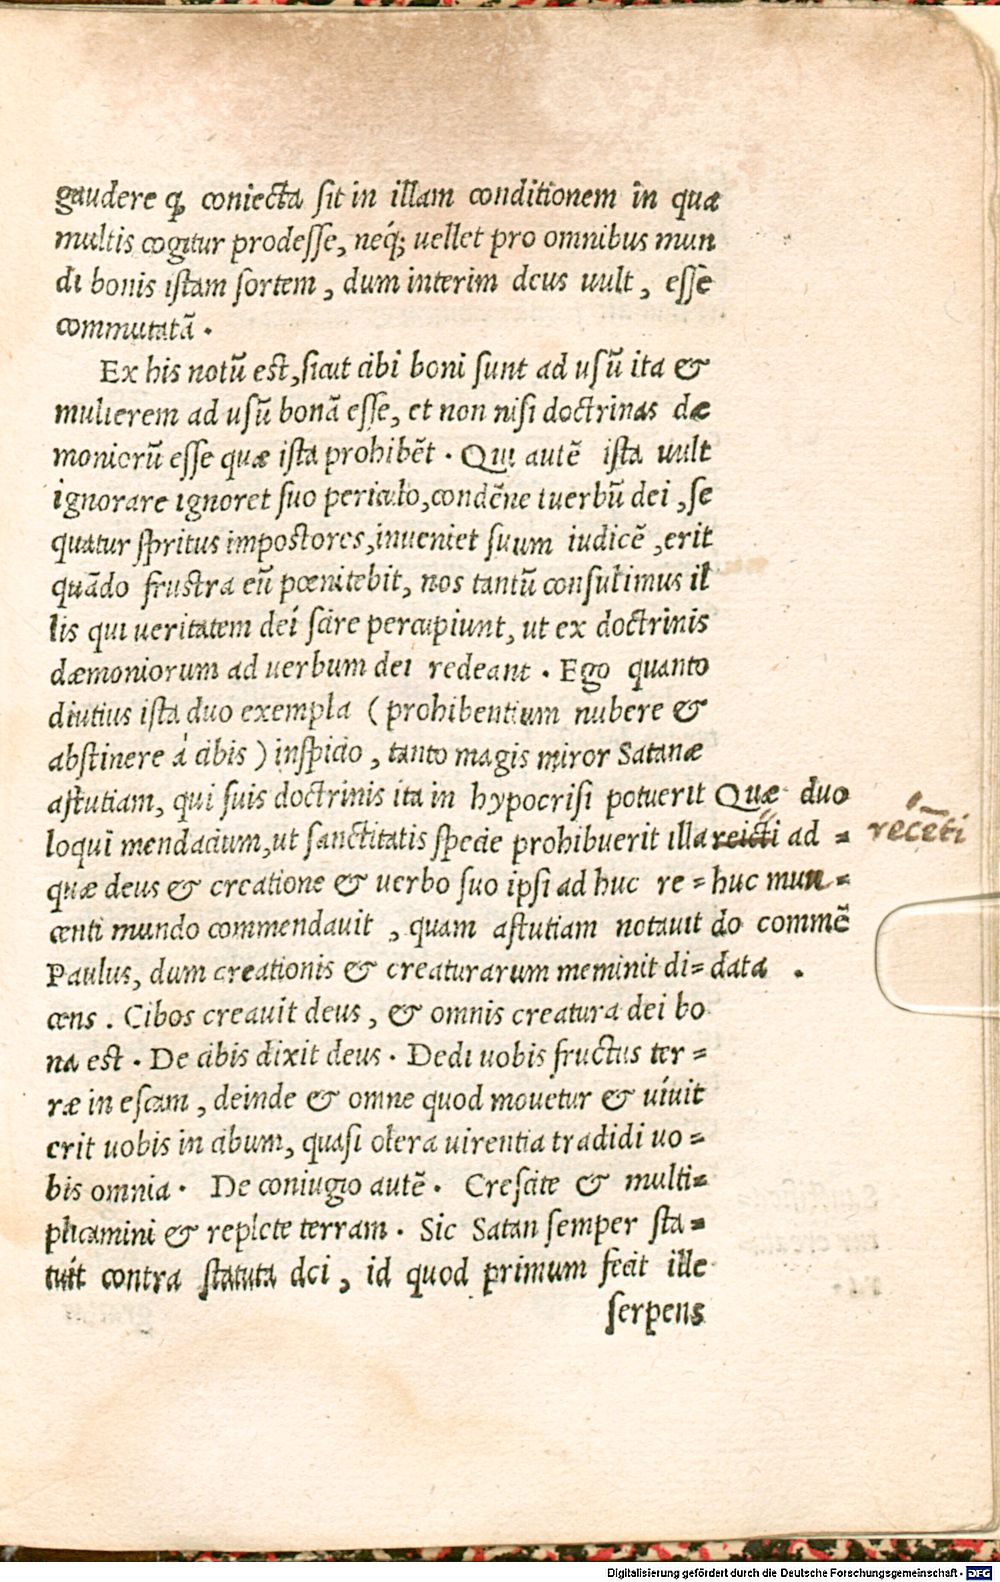 gaudere ꝙ coniecta sit in illam conditionem in qua
multis cogitur prodesse, neq; uellet pro omnibus mun
di bonis istam sortem, dum interim deus uult, esse
commutatā.
Ex his notū est, sicut cibi boni sunt ad usū ita &
mulierem ad usū bonā esse, et non nisi doctrinas dæ
moniorū esse quæ ista prohibēt. Qui autē ista uult
ignorare ignoret suo periculo, condēne tuerbū dei, se
quatur spritus impostores, inueniet suum iudicē, erit
quādo frustra eū pœnitebit, nos tantū consulimus il
lis qui ueritatem dei scire percupiunt, ut ex doctrinis
dæmoniorum ad uerbum dei redeant. Ego quanto
diutius ista duo exempla (prohibentium nubere &
abstinere á cibis) inspicio, tanto magis miror Satanæ
astutiam, qui suis doctrinis ita in hypocrisi potuerit
loqui mendacium, ut sanctitatis specie prohibuerit illa
quæ deus & creatione & uerbo suo ipsi ad huc re=
centi mundo commendauit, quam astutiam notauit
Paulus, dum creationis & creaturarum meminit di=
cens. Cibos creauit deus, & omnis creatura dei bo
na est. De cibis dixit deus. Dedi uobis fructus ter=
ræ in escam, deinde & omne quod mouetur & uíuit
erit uobis in cibum, quasi olera uirentia tradidi uo=
bis omnia. De coniugio autē. Crescite & multi=
plicamini & replete terram. Sic Satan semper sta=
tuít contra statuta dei, id quod primum fecit ille
serpens
Quæ duo
reicti ad=
huc mun=
do commē
data.
recēti
Digitalisierung gefördert durch die Deutsche Forschungsgemeinschaft - DFG